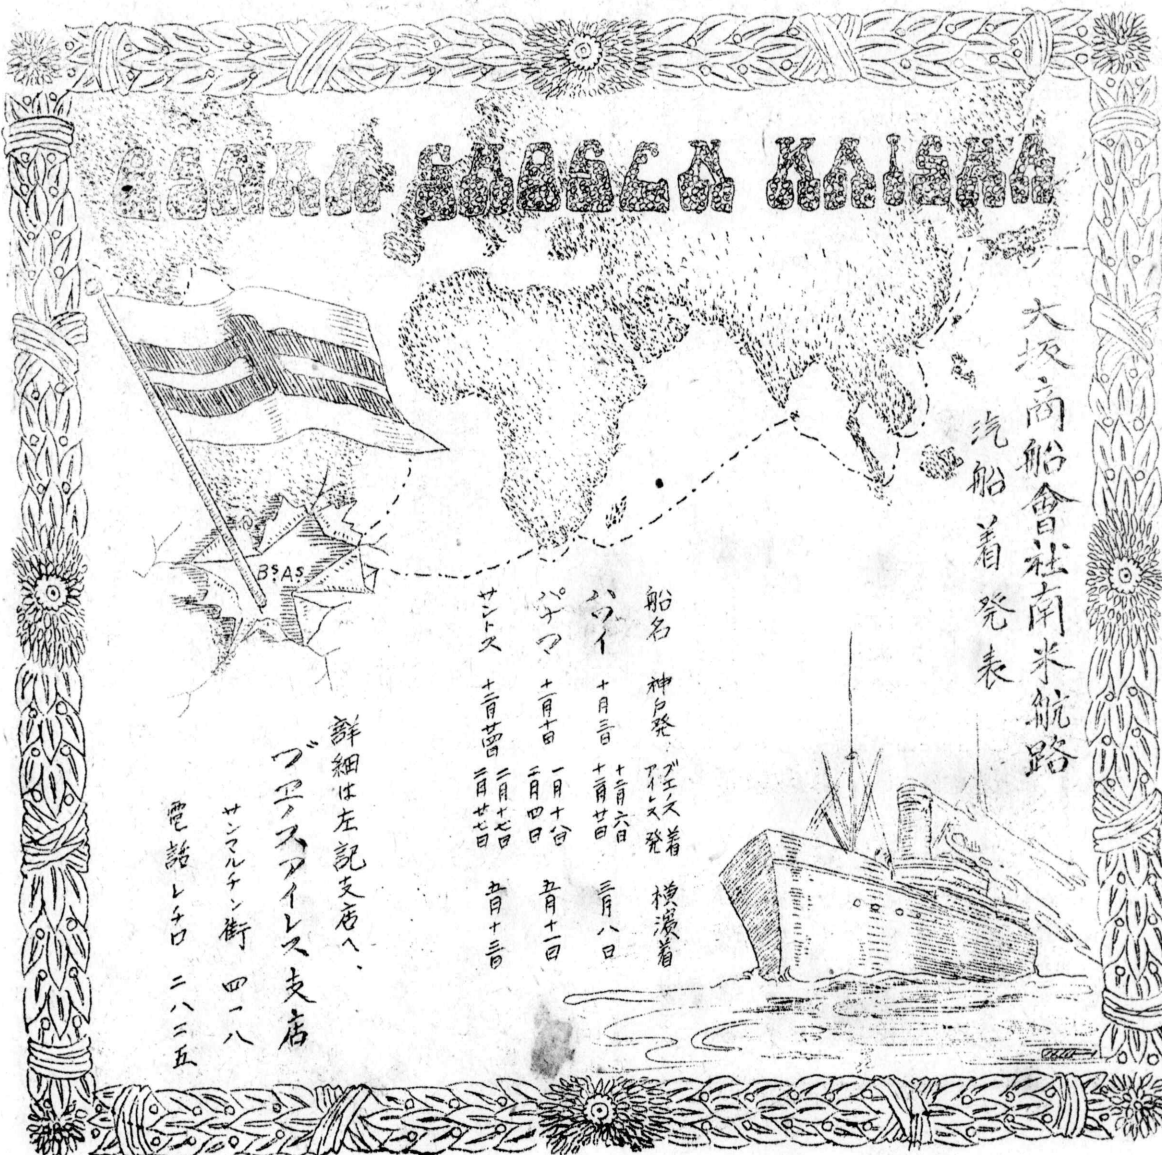 OSAKA SHOSEN KAISHA
大坂商船會社南米航路
汽船着発表
船名 神戸発 ブエノスアイレス着発 横濱着
ハワイ 十月三日 十二月六日 十二月廿日 三月八日
パナマ 十一月十日 一月十八日 二月四日 五月十一日
サントス 十二月廿四日 二月十七日 二月廿七日 五月十三日
詳細は左記支店へ、
ブエノスアイレス支店
サンマルチン街 四一八
電話レチロ 二八二五
BS AS